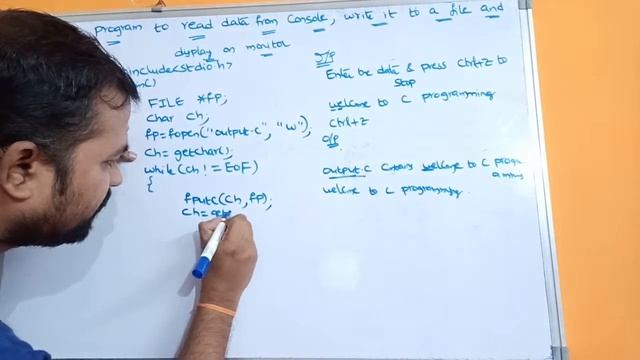 program to read data from console, write it to a file and
display on monitor
include<stdio.h>
FILE *fp;
char ch;
fp=fopen("output.c", "w");
ch=getchar();
while(ch!=EOF)
{
fputc(ch,fp);
ch=get
I/P
Enter the data & press Ctrl+Z to
stop
welcome to C programming
Ctrl+Z
O/P
output.c contains welcome to C progr
amming
welcome to C programming.